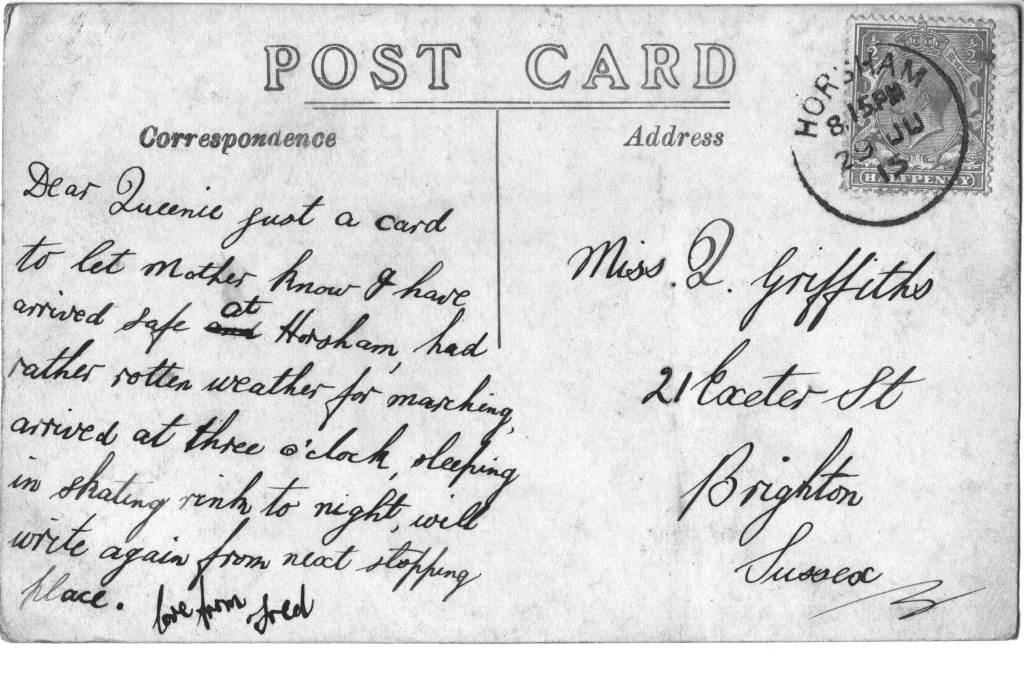 POST CARD
Correspondence
Address
HORSHAM
8.15PM
29 JU
15
½
½
HALFPENNY
Dear Queenie just a card
to let Mother know I have
arrived safe and at Horsham, had
rather rotten weather for marching,
arrived at three o'clock, sleeping
in skating rink to night, will
write again from next stopping
place. love from Fred
Miss. Q. Griffiths
21 Exeter St
Brighton
Sussex